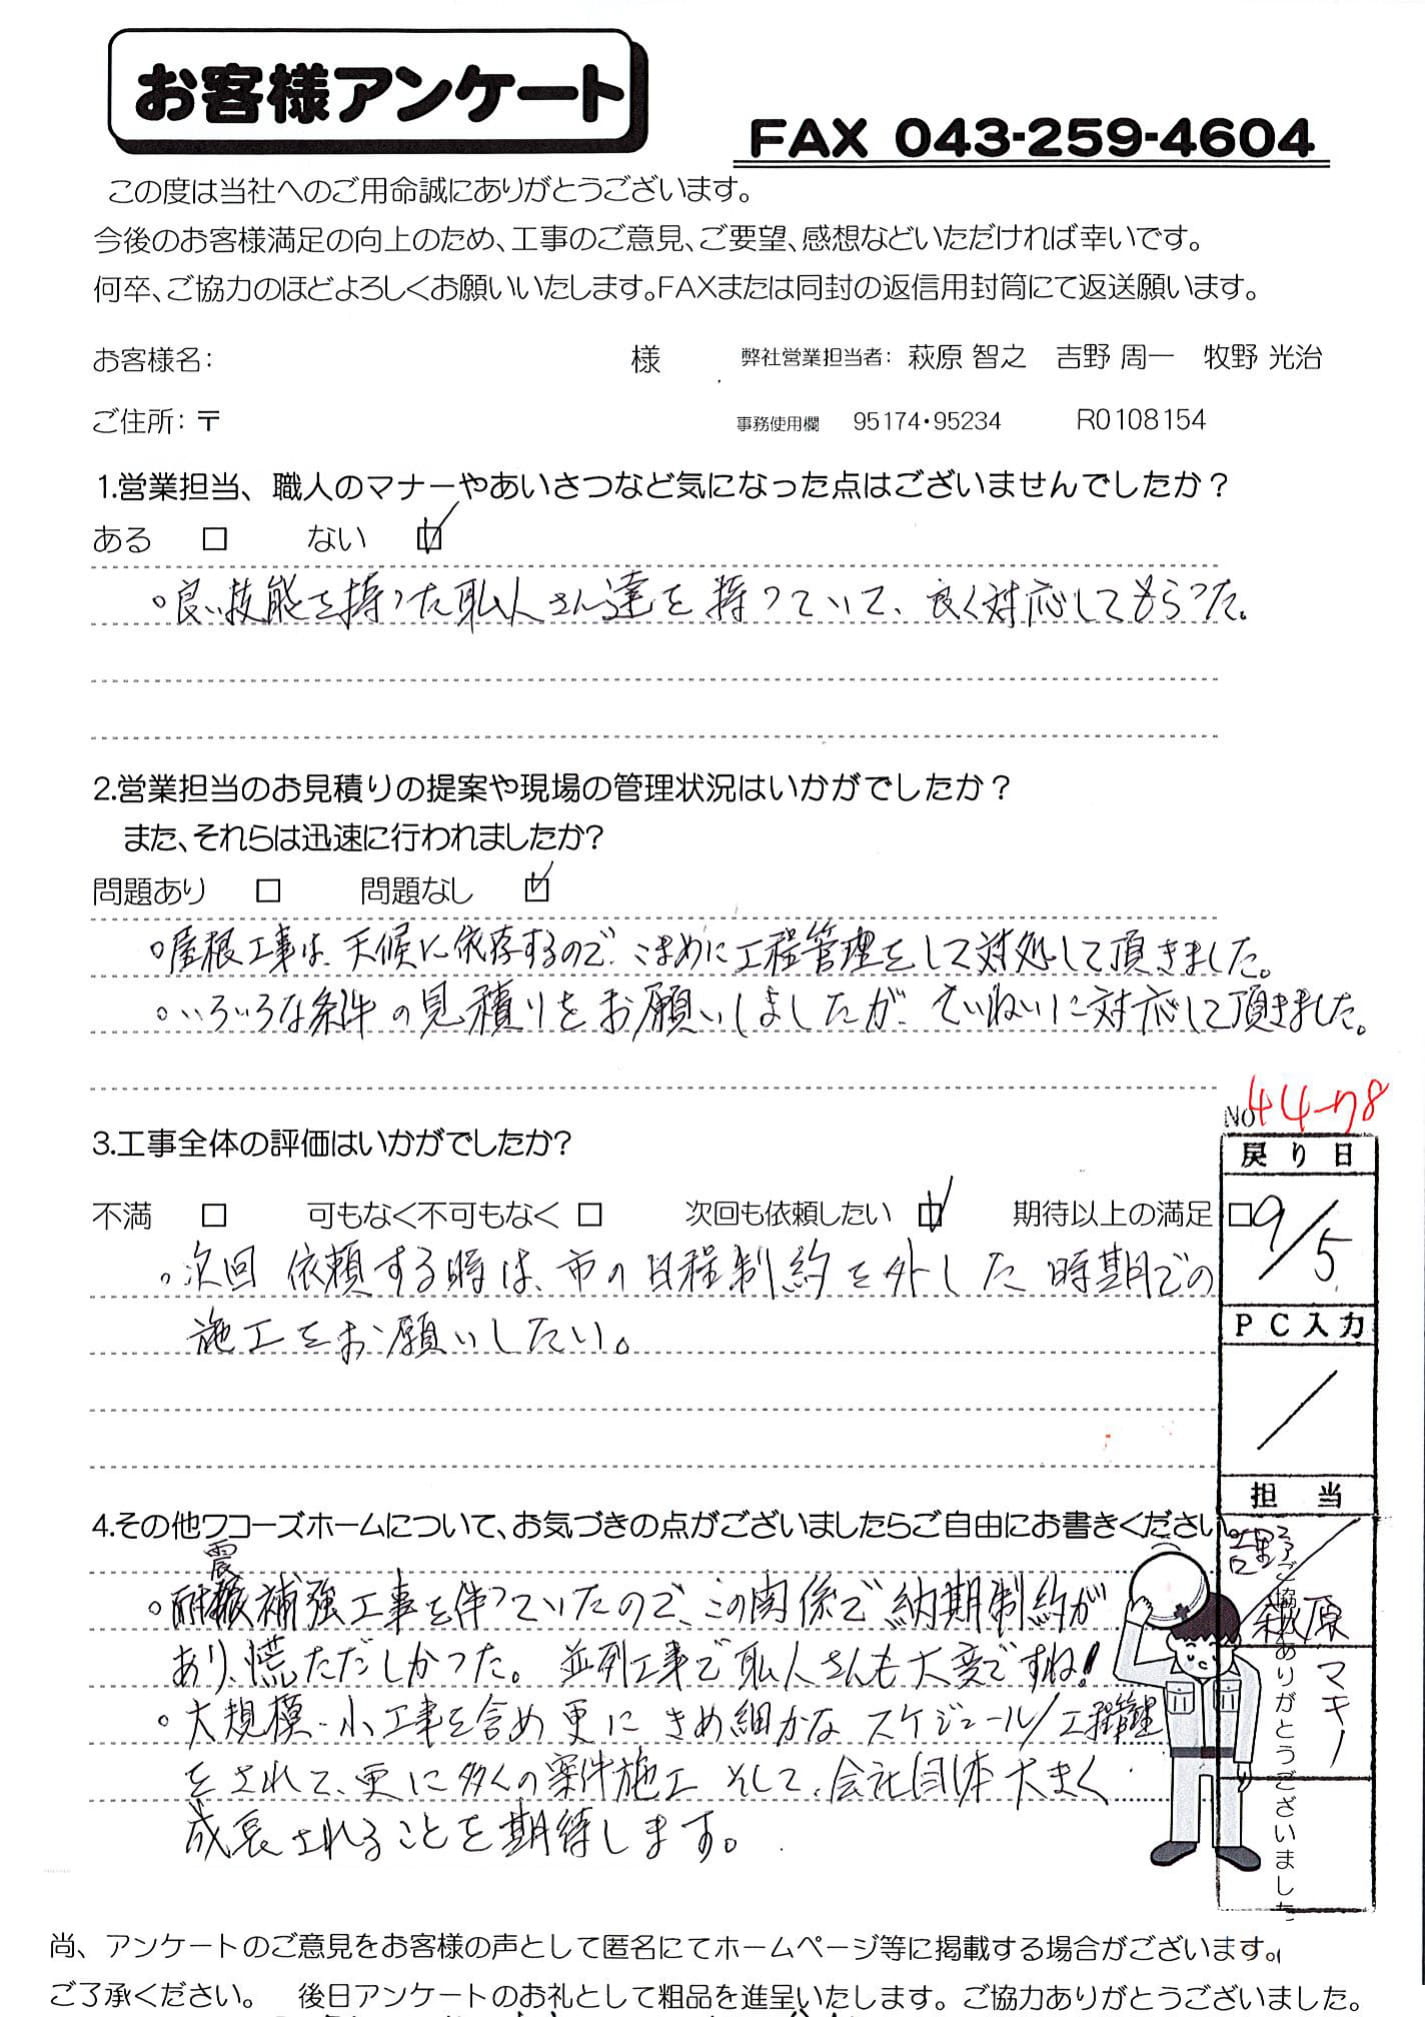 お客様アンケート
FAX 043-259-4604
この度は当社へのご用命誠にありがとうございます。
今後のお客様満足の向上のため、工事のご意見、ご要望、感想などいただければ幸いです。
何卒、ご協力のほどよろしくお願いいたします。FAXまたは同封の返信用封筒にて返送願います。
お客様名： 様 弊社営業担当者： 萩原 智之 吉野 周一 牧野 光治
ご住所：〒 事務使用欄 95174・95234 R0108154
1.営業担当、職人のマナーやあいさつなど気になった点はございませんでしたか？
ある □ ない ☑
○良い技能を持った職人さん達を持っていて、良く対応してもらった。
2.営業担当のお見積りの提案や現場の管理状況はいかがでしたか？
また、それらは迅速に行われましたか？
問題あり □ 問題なし ☑
○屋根工事は、天候に依存するので、こまめに工程管理をして対処して頂きました。
○いろいろな条件の見積りをお願いしましたが、ていねいに対応して頂きました。
NO 44-78
3.工事全体の評価はいかがでしたか？
不満 □ 可もなく不可もなく □ 次回も依頼したい ☑ 期待以上の満足 □
○次回 依頼する時は、市の日程制約を外した時期での
施工をお願いしたい。
戻り日
9/5
PC入力
/
担当
吉野
萩原
マキノ
4.その他ワコーズホームについて、お気づきの点がございましたらご自由にお書きください。
○耐震補強工事を伴っていたので、この関係で納期制約が
あり、慌ただしかった。並列工事で職人さんも大変ですね！
○大規模・小工事を含め更にきめ細かなスケジュール/工程管理
をされて、更に多くの案件施工 そして、会社自体大きく
成長されることを期待します。
ご協力ありがとうございました
尚、アンケートのご意見をお客様の声として匿名にてホームページ等に掲載する場合がございます。
ご了承ください。 後日アンケートのお礼として粗品を進呈いたします。ご協力ありがとうございました。